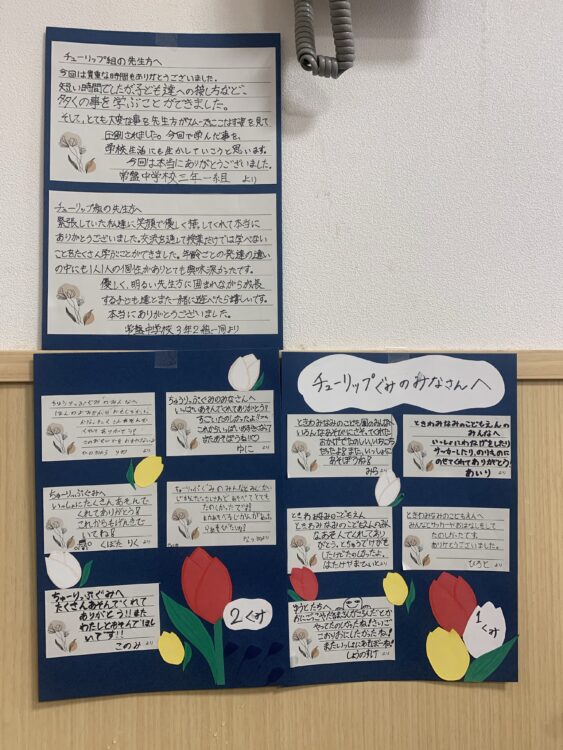 チューリップ組の先生方へ
今回は貴重な時間をありがとうございました。
短い時間でしたが、子ども達への接し方など、
多くの事を学ぶことができました。
そして、とても大変な事を先生方がスムーズにこなす姿を見て
圧倒されました。今回で学んだ事を、
学校生活にも生かしていこうと思います。
今回は本当にありがとうございました。
常盤中学校三年一組 より
チューリップ組の先生方へ
緊張していた私達に笑顔で優しく接してくれて本当に
ありがとうございました。交流を通して授業だけでは学べない
ことをたくさん学ぶことができました。年齢ごとの発達の違い
の中にも1人1人の個性がありとても興味深かったです。
優しく、明るい先生方に囲まれながら成長
する子ども達とまた一緒に遊べたら嬉しいです。
本当にありがとうございました。
常盤中学校3年2組一同より
ちゅうりっぷぐみのみなさんへ
いっぱいあそんでくれてありがとう!!
すごいたのしかったよ!!
またあそぼうね
ゆに より
ちゅーりっぷぐみへ
いっしょにたくさんあそんで
くれてありがとう!
これからもげんきで
いてね!
くぼた りく より
ちゅーりっぷぐみのみんなへ
たのしかったです
ちゅーりっぷぐみへ
たくさんあそんでくれて
ありがとう!!また
わたしとあそんでほし
いです!!
このみ より
2くみ
チューリップぐみのみなさんへ
ときわみなみのこども園のみんなへ
いろんなあそびにさそってくれた
おかげでたのしいいちにち
あそぼうね!
みら より
ときわみなみのこどもえんの
みんなへ
いっしょにわなげをしたり
サッカーしたり、のりものに
のせてくれてありがとう
あいり より
ときわみなみのこどもえん
ときわみなみのこどもえんのみ
なあそんでくれてあり
がとう。
したけどたのしかったよ。
ときわみなみのこどもえんへ
みんなとサッカーやおはなしをして
たのしかったです。
ありがとうございました。
ひろと より
ゆうとたちへ
やってたのしかったね!
こおりおにしたかったね!
またいっしょにあそぼーね!
しょうのすけ より
1くみ